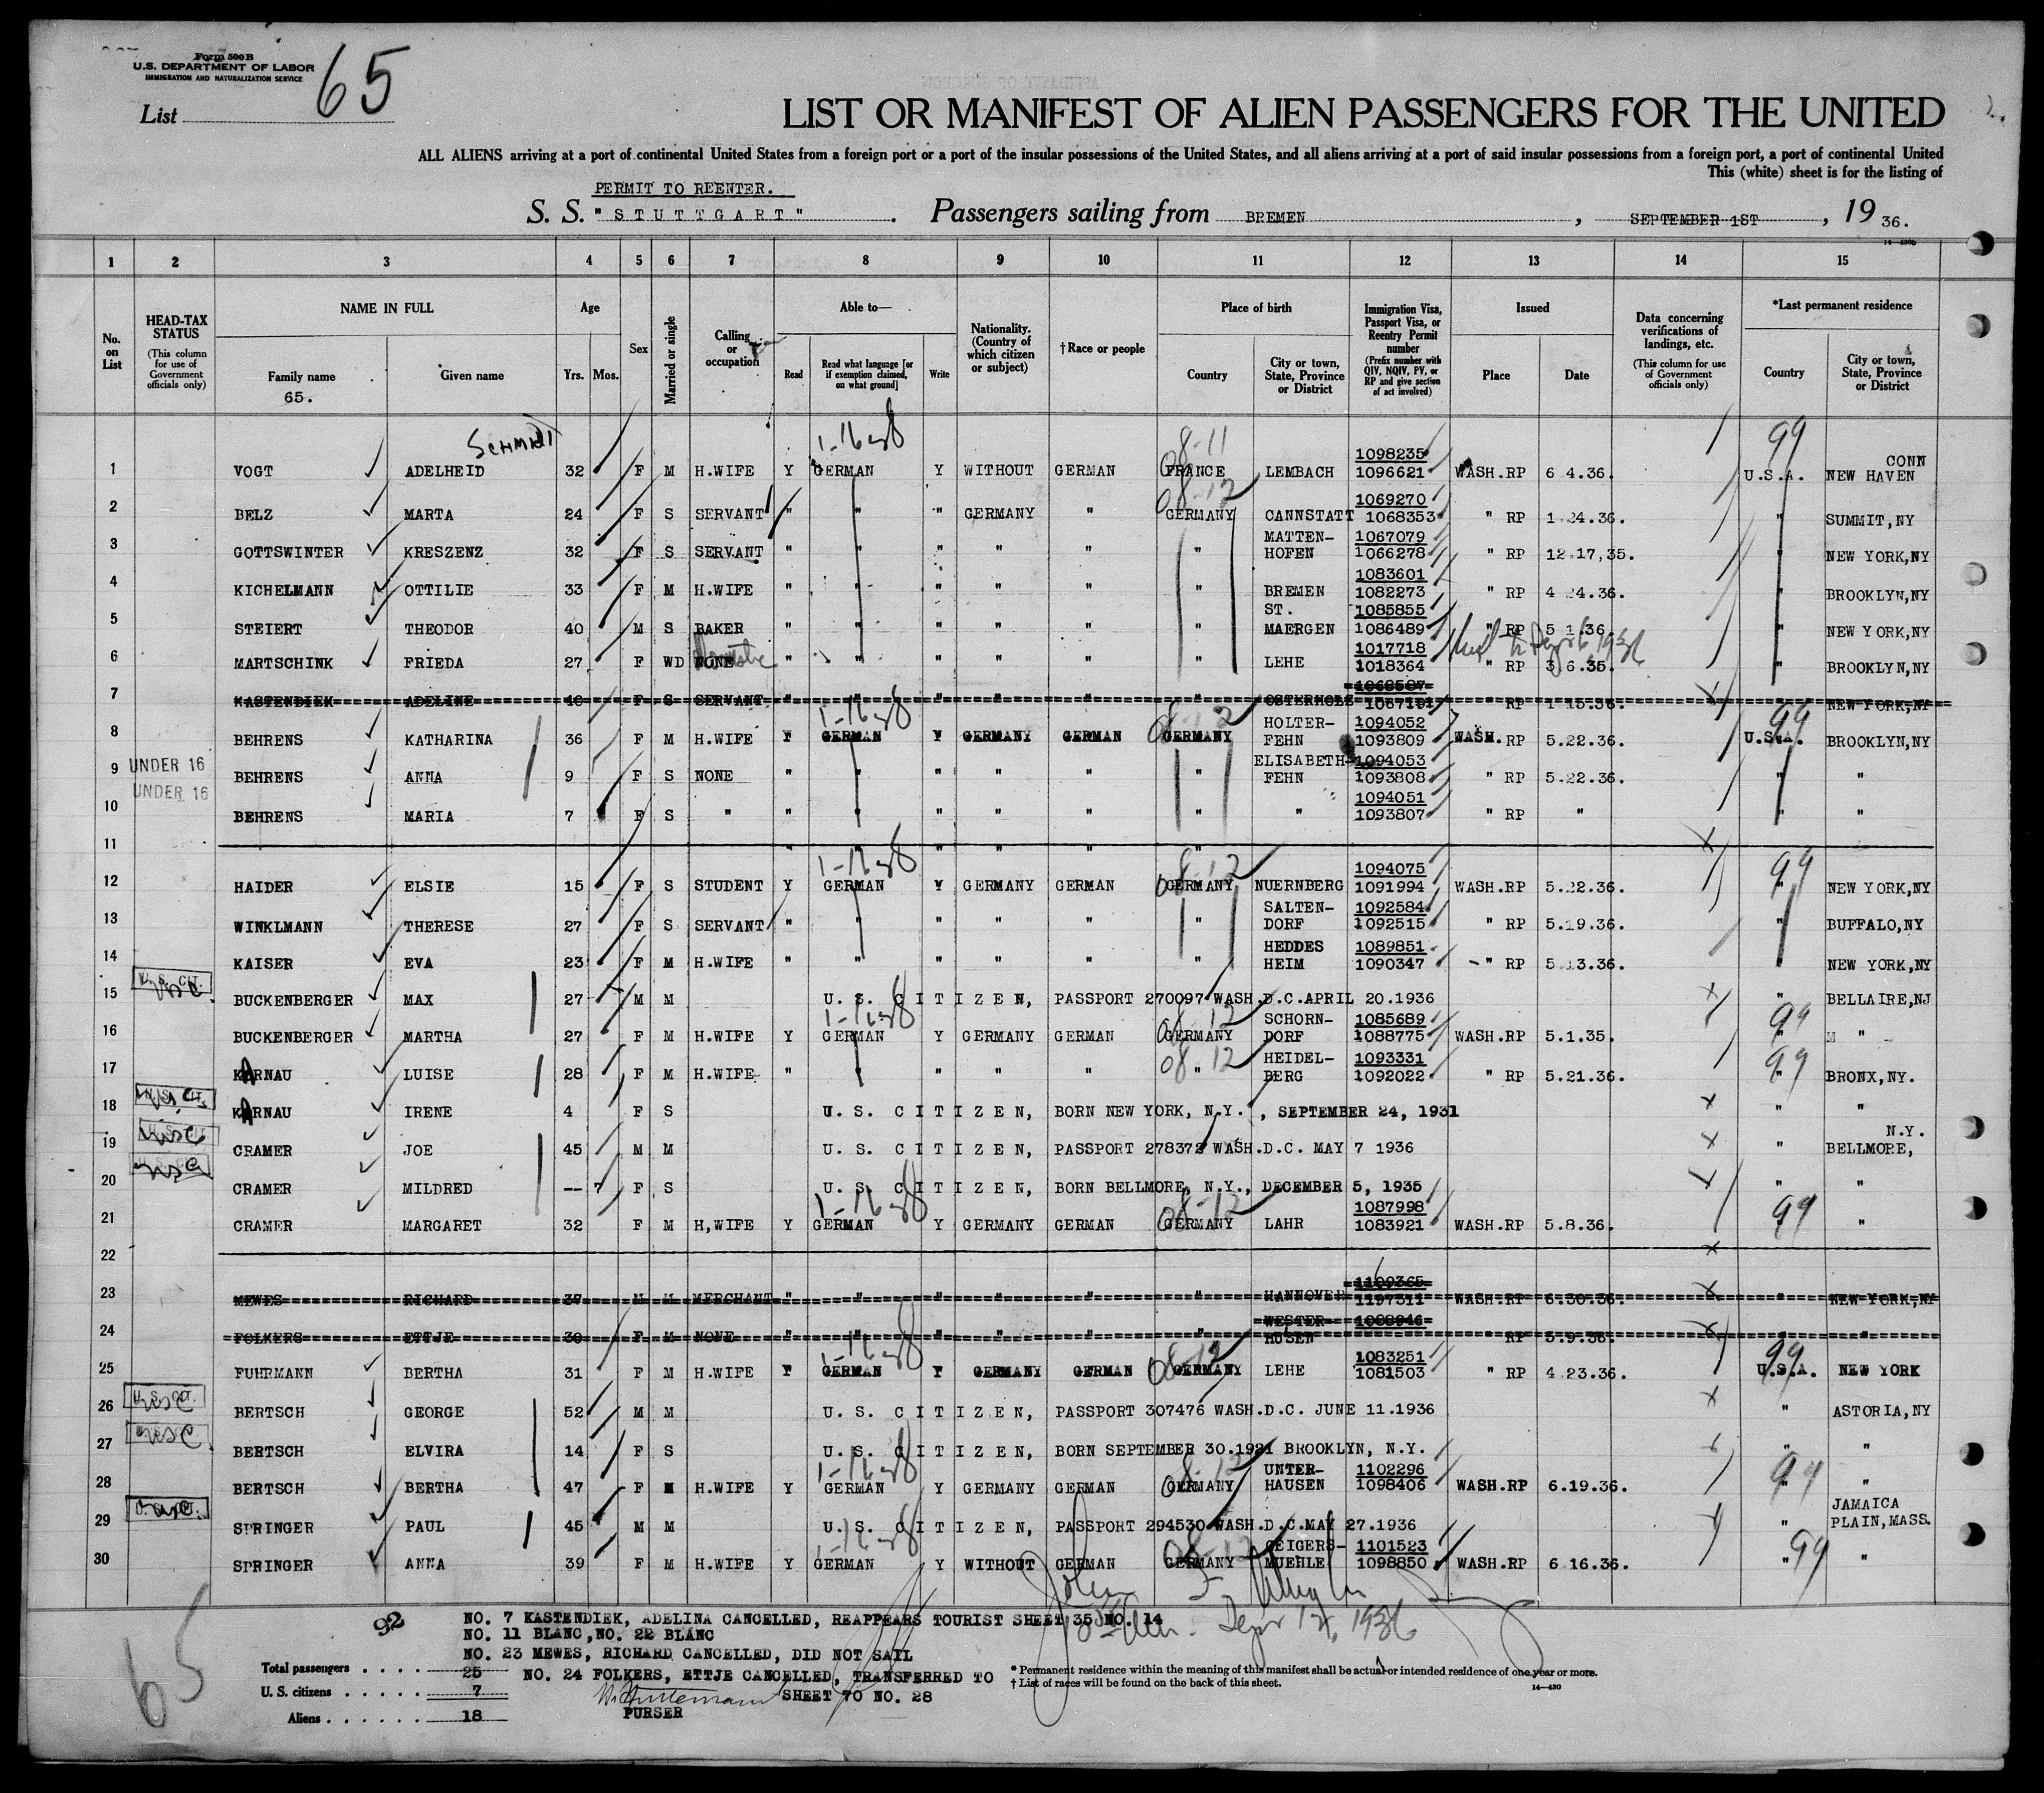 Form 500 B
U.S. DEPARTMENT OF LABOR
IMMIGRATION AND NATURALIZATION SERVICE
List 65
LIST OR MANIFEST OF ALIEN PASSENGERS FOR THE UNITED
ALL ALIENS arriving at a port of continental United States from a foreign port or a port of the insular possessions of the United States, and all aliens arriving at a port of said insular possessions from a foreign port, a port of continental United
This (white) sheet is for the listing of
PERMIT TO REENTER.
S. S. "STUTTGART" . Passengers sailing from BREMEN , SEPTEMBER 1ST , 19 36.
1 2 3 4 5 6 7 8 9 10 11 12 13 14 15
No. on List
HEAD-TAX STATUS (This column for use of Government officials only)
NAME IN FULL
Family name
65.
Given name
Age
Yrs. Mos.
Sex
Married or single
Calling or occupation
Able to—
Read
Read what language [or if exemption claimed, on what ground]
Write
Nationality. (Country of which citizen or subject)
†Race or people
Place of birth
Country
City or town, State, Province or District
Immigration Visa, Passport Visa, or Reentry Permit number (Prefix number with QIV, NQIV, PV, or RP and give section of act involved)
Issued
Place
Date
Data concerning verifications of landings, etc. (This column for use of Government officials only)
*Last permanent residence
Country
City or town, State, Province or District
SCHMIDT
08-11 99
1 VOGT ADELHEID 32 F M H.WIFE Y GERMAN Y WITHOUT GERMAN FRANCE LEMBACH 1098235 1096621 WASH.RP 6 4.36. U.S.A. CONN NEW HAVEN
08-12
2 BELZ MARTA 24 F S SERVANT " " " GERMANY " GERMANY CANNSTATT 1069270 1068353 " RP 1.24.36. " SUMMIT,NY
3 GOTTSWINTER KRESZENZ 32 F S SERVANT " " " " " " MATTEN-HOFEN 1067079 1066278 " RP 12.17,35. " NEW YORK,NY
4 KICHELMANN OTTILIE 33 F M H.WIFE " " " " " " BREMEN 1083601 1082273 " RP 4 24.36. " BROOKLYN,NY
5 STEIERT THEODOR 40 M S BAKER " " " " " " ST. MAERGEN 1085855 1086489 " RP 5 1.36. " NEW YORK,NY
6 MARTSCHINK FRIEDA 27 F WD NONE " " " " " " LEHE 1017718 1018364 " RP 3 6.35. " BROOKLYN,NY
7 KASTENDIEK ADELINE 40 F S SERVANT " " " " " " OSTERHOLZ 1068587 " RP 1 15.36. NEW YORK,NY
08-12 99
8 BEHRENS KATHARINA 36 F M H.WIFE Y GERMAN Y GERMANY GERMAN GERMANY HOLTER-FEHN 1094052 1093809 WASH. RP 5.22.36. U.S.A. BROOKLYN,NY
9 UNDER 16 BEHRENS ANNA 9 F S NONE " " " " " " ELISABETH-FEHN 1094053 1093808 " RP 5.22.36. " "
10 UNDER 16 BEHRENS MARIA 7 F S " " " " " " " " 1094051 1093807 " RP " " "
11 " " " " "
08-12 99
12 HAIDER ELSIE 15 F S STUDENT Y GERMAN Y GERMANY GERMAN GERMANY NUERNBERG 1094075 1091994 WASH.RP 5.22.36. " NEW YORK,NY
13 WINKLMANN THERESE 27 F S SERVANT " " " " " " SALTEN-DORF 1092584 1092515 " RP 5.19.36. " BUFFALO,NY
14 KAISER EVA 23 F M H.WIFE " " " " " " HEDDES HEIM 1089851 1090347 " RP 5.13.36. " NEW YORK,NY
15 U.S. CIT. BUCKENBERGER MAX 27 M M U. S. CITIZEN, PASSPORT 270097 WASH.D.C.APRIL 20.1936 " BELLAIRE,NJ
08-12 99
16 BUCKENBERGER MARTHA 27 F M H.WIFE Y GERMAN Y GERMANY GERMAN GERMANY SCHORN-DORF 1085689 1088775 WASH.RP 5.1.35. " "
08-12 99
17 KARNAU LUISE 28 F M H.WIFE " " " " " " HEIDEL-BERG 1093331 1092022 " RP 5.21.36. " BRONX,NY.
18 U.S. CIT. KARNAU IRENE 4 F S U. S. CITIZEN, BORN NEW YORK, N.Y. , SEPTEMBER 24, 1931 " "
19 CRAMER JOE 45 M M U. S. CITIZEN, PASSPORT 278372 WASH.D.C. MAY 7 1936 " N.Y. BELLMORE,
20 CRAMER MILDRED -- 7 F S U. S. CITIZEN, BORN BELLMORE, N.Y., DECEMBER 5, 1935 " "
08-12 99
21 CRAMER MARGARET 32 F M H,WIFE Y GERMAN Y GERMANY GERMAN GERMANY LAHR 1087998 1083921 WASH.RP 5.8.36. " "
22
23 MEWES RICHARD 37 M M MERCHANT " " " " " " HANNOVER 1109365 1197311 WASH.RP 6.30.36. " NEW YORK,NY
24 FOLKERS ETTJE 30 F M NONE " " " " " " WESTER-HUSEN 1088946 " RP 5.9.36. " "
08-12 99
25 FUHRMANN BERTHA 31 F M H.WIFE Y GERMAN Y GERMANY GERMAN GERMANY LEHE 1083251 1081503 " RP 4.23.36. U.S.A. NEW YORK
26 U.S. CIT. BERTSCH GEORGE 52 M M U. S. CITIZEN, PASSPORT 307476 WASH.D.C. JUNE 11.1936 " ASTORIA,NY
27 BERTSCH ELVIRA 14 F S U. S. CITIZEN, BORN SEPTEMBER 30.1921 BROOKLYN, N.Y. " "
08-12 99
28 BERTSCH BERTHA 47 F M H.WIFE Y GERMAN Y GERMANY GERMAN GERMANY UNTER-HAUSEN 1102296 1098406 WASH.RP 6.19.36. " "
29 SPRINGER PAUL 45 M M U. S. CITIZEN, PASSPORT 294530 WASH.D.C.MAY 27.1936 " JAMAICA PLAIN,MASS.
08-12 99
30 SPRINGER ANNA 39 F M H.WIFE Y GERMAN Y WITHOUT GERMAN GERMANY GEIGERS-MUEHLE 1101523 1098850 WASH.RP 6 16.36. " "
65
92
NO. 7 KASTENDIEK, ADELINA CANCELLED, REAPPEARS TOURIST SHEET 35 NO. 14
NO. 11 BLANC,NO. 22 BLANC
NO. 23 MEWES, RICHARD CANCELLED, DID NOT SAIL
NO. 24 FOLKERS, ETTJE CANCELLED, TRANSFERRED TO
SHEET 70 NO. 28
PURSER
Total passengers . . . . 25
U. S. citizens . . . . . 7
Aliens . . . . . . 18
*Permanent residence within the meaning of this manifest shall be actual or intended residence of one year or more.
†List of races will be found on the back of this sheet.
14—430